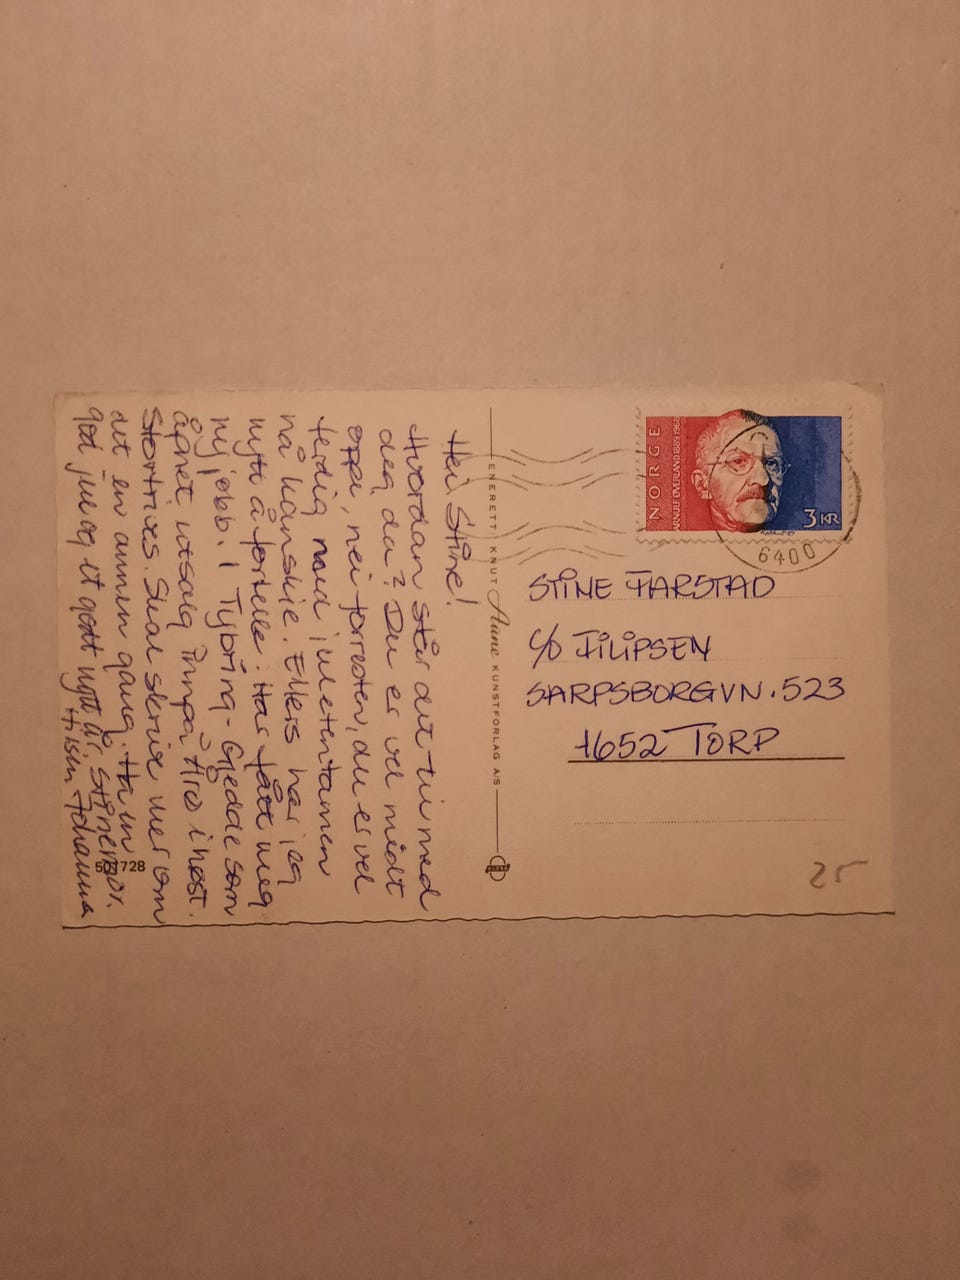 Hei Stine!
Hvordan står det til med
deg da? Du er vel midt
oppi, nei forresten, du er vel
ferdig med juletentamen
nå kanskje. Ellers har jeg
nytt å fortelle: Har fått meg
ny jobb. I Tybring-Gjedde som
åpnet utsalg innpå Årø i høst.
Stortrives. Skal skrive mer om
det en annen gang. Ha en
god jul og et godt nytt år, Stinemor.
Hilsen Johanna
503728
ENERETT: KNUT Aune KUNSTFORLAG A/S
NORGE
ARNULF ØVERLAND 1889-1968
3 KR
6400
STINE FARSTAD
c/o FILIPSEN
SARPSBORGVN. 523
1652 TORP
25